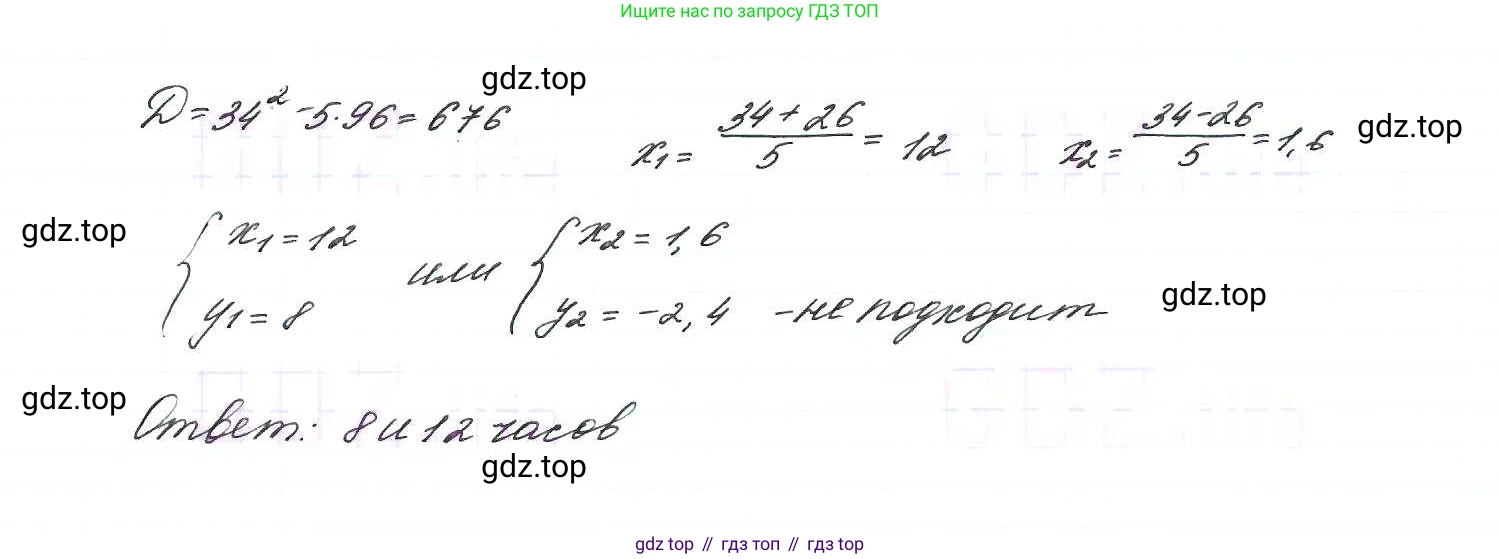 Ищите нас по запросу ГДЗ ТОП
gdz.top
Д = 34² - 5·96 = 676 x₁ = (34 + 26)/5 = 12 x₂ = (34 - 26)/5 = 1,6 gdz.top
gdz.top { x₁ = 12 или { x₂ = 1,6
{ y₁ = 8 { y₂ = -2,4 - не подходит gdz.top
gdz.top Ответ: 8 и 12 часов
gdz.top
gdz top // гдз топ // гдз top